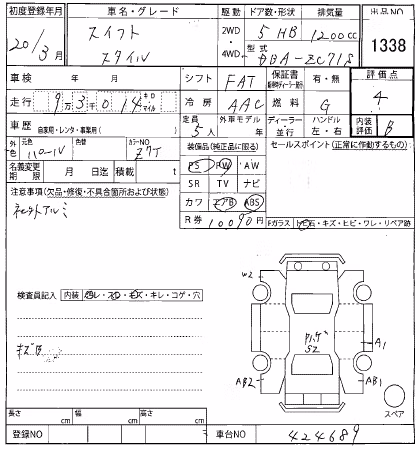 初度登録年月
車名・グレード
駆動
ドア数・形状
排気量
出品NO
20/3月
スイフト
スタイル
2WD
・
4WD
5 HB
1200cc
型式
DBA-ZC71S
1338
車検
年
月
シフト
FAT
保証書
有・無
評価点
走行
9万3千014
キロ
マイル
冷房
AAC
燃料
G
4
車歴
自家用・レンタ・事業用
定員
5人
外車モデル
年
ディーラー
並行
ハンドル
左・右
内装
評価
B
外色
元色
パール
色替
カラーNO
Z7T
装備品(純正品に限る)
セールスポイント(正常に作動するもの)
PS
PW
AW
名義変更
期限
月
日迄
積載
t
SR
TV
ナビ
注意事項(欠品・修復・不具合箇所および状態)
カワ
エアB
ABS
R券
10090円
Fガラス
トビ石・キズ・ヒビ・ワレ・リペア跡
検査員記入
内装
ヨレ・スレ・キズ・キレ・コゲ・穴
キズ
W2
S2
A1
AB2
AB1
スペア
長さ
cm
幅
cm
高さ
cm
登録NO
車台NO
424689